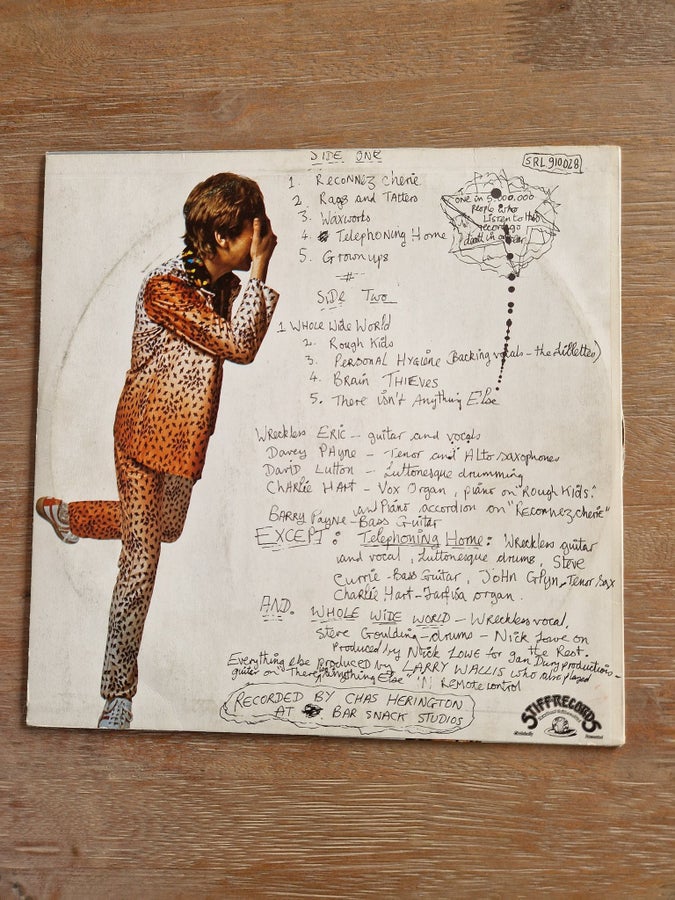 SIDE ONE
SRL 910028
1. Reconnez cherie
2. Rags and Tatters
3. Waxworks
4. Telephoning Home
5. Grownups
#
SIDE TWO
one in 5.000.000
people who
Listen to this
record go
1 Whole Wide World
2. Rough Kids
3. Personal Hygiene (Backing vocals - the Liblettes)
4. Brain THIEVES
5. There isn't Anything Else
Wreckless Eric - guitar and vocals
Davey Payne - Tenor and Alto Saxophones
David Lutton - Luttonesque drumming
Charlie Hart - Vox Organ, piano on "Rough Kids"
and Piano accordion on "Reconnez cherie"
Barry Payne - Bass Guitar
EXCEPT: Telephoning Home: Wreckless guitar
and vocal, Luttonesque drums, Steve
Currie - Bass Guitar, John Glyn - Tenor Sax
Charlie Hart - Farfisa organ.
AND. WHOLE WIDE WORLD - Wreckless vocal,
Steve Goulding - drums - Nick Lowe on
the Rest.
Produced by Nick Lowe for
Everything else produced by LARRY WALLIS who also played
guitar on "There isn't anything Else" 'N' Remote control
RECORDED BY CHAS HERINGTON
AT BAR SNACK STUDIOS
STIFF RECORDS